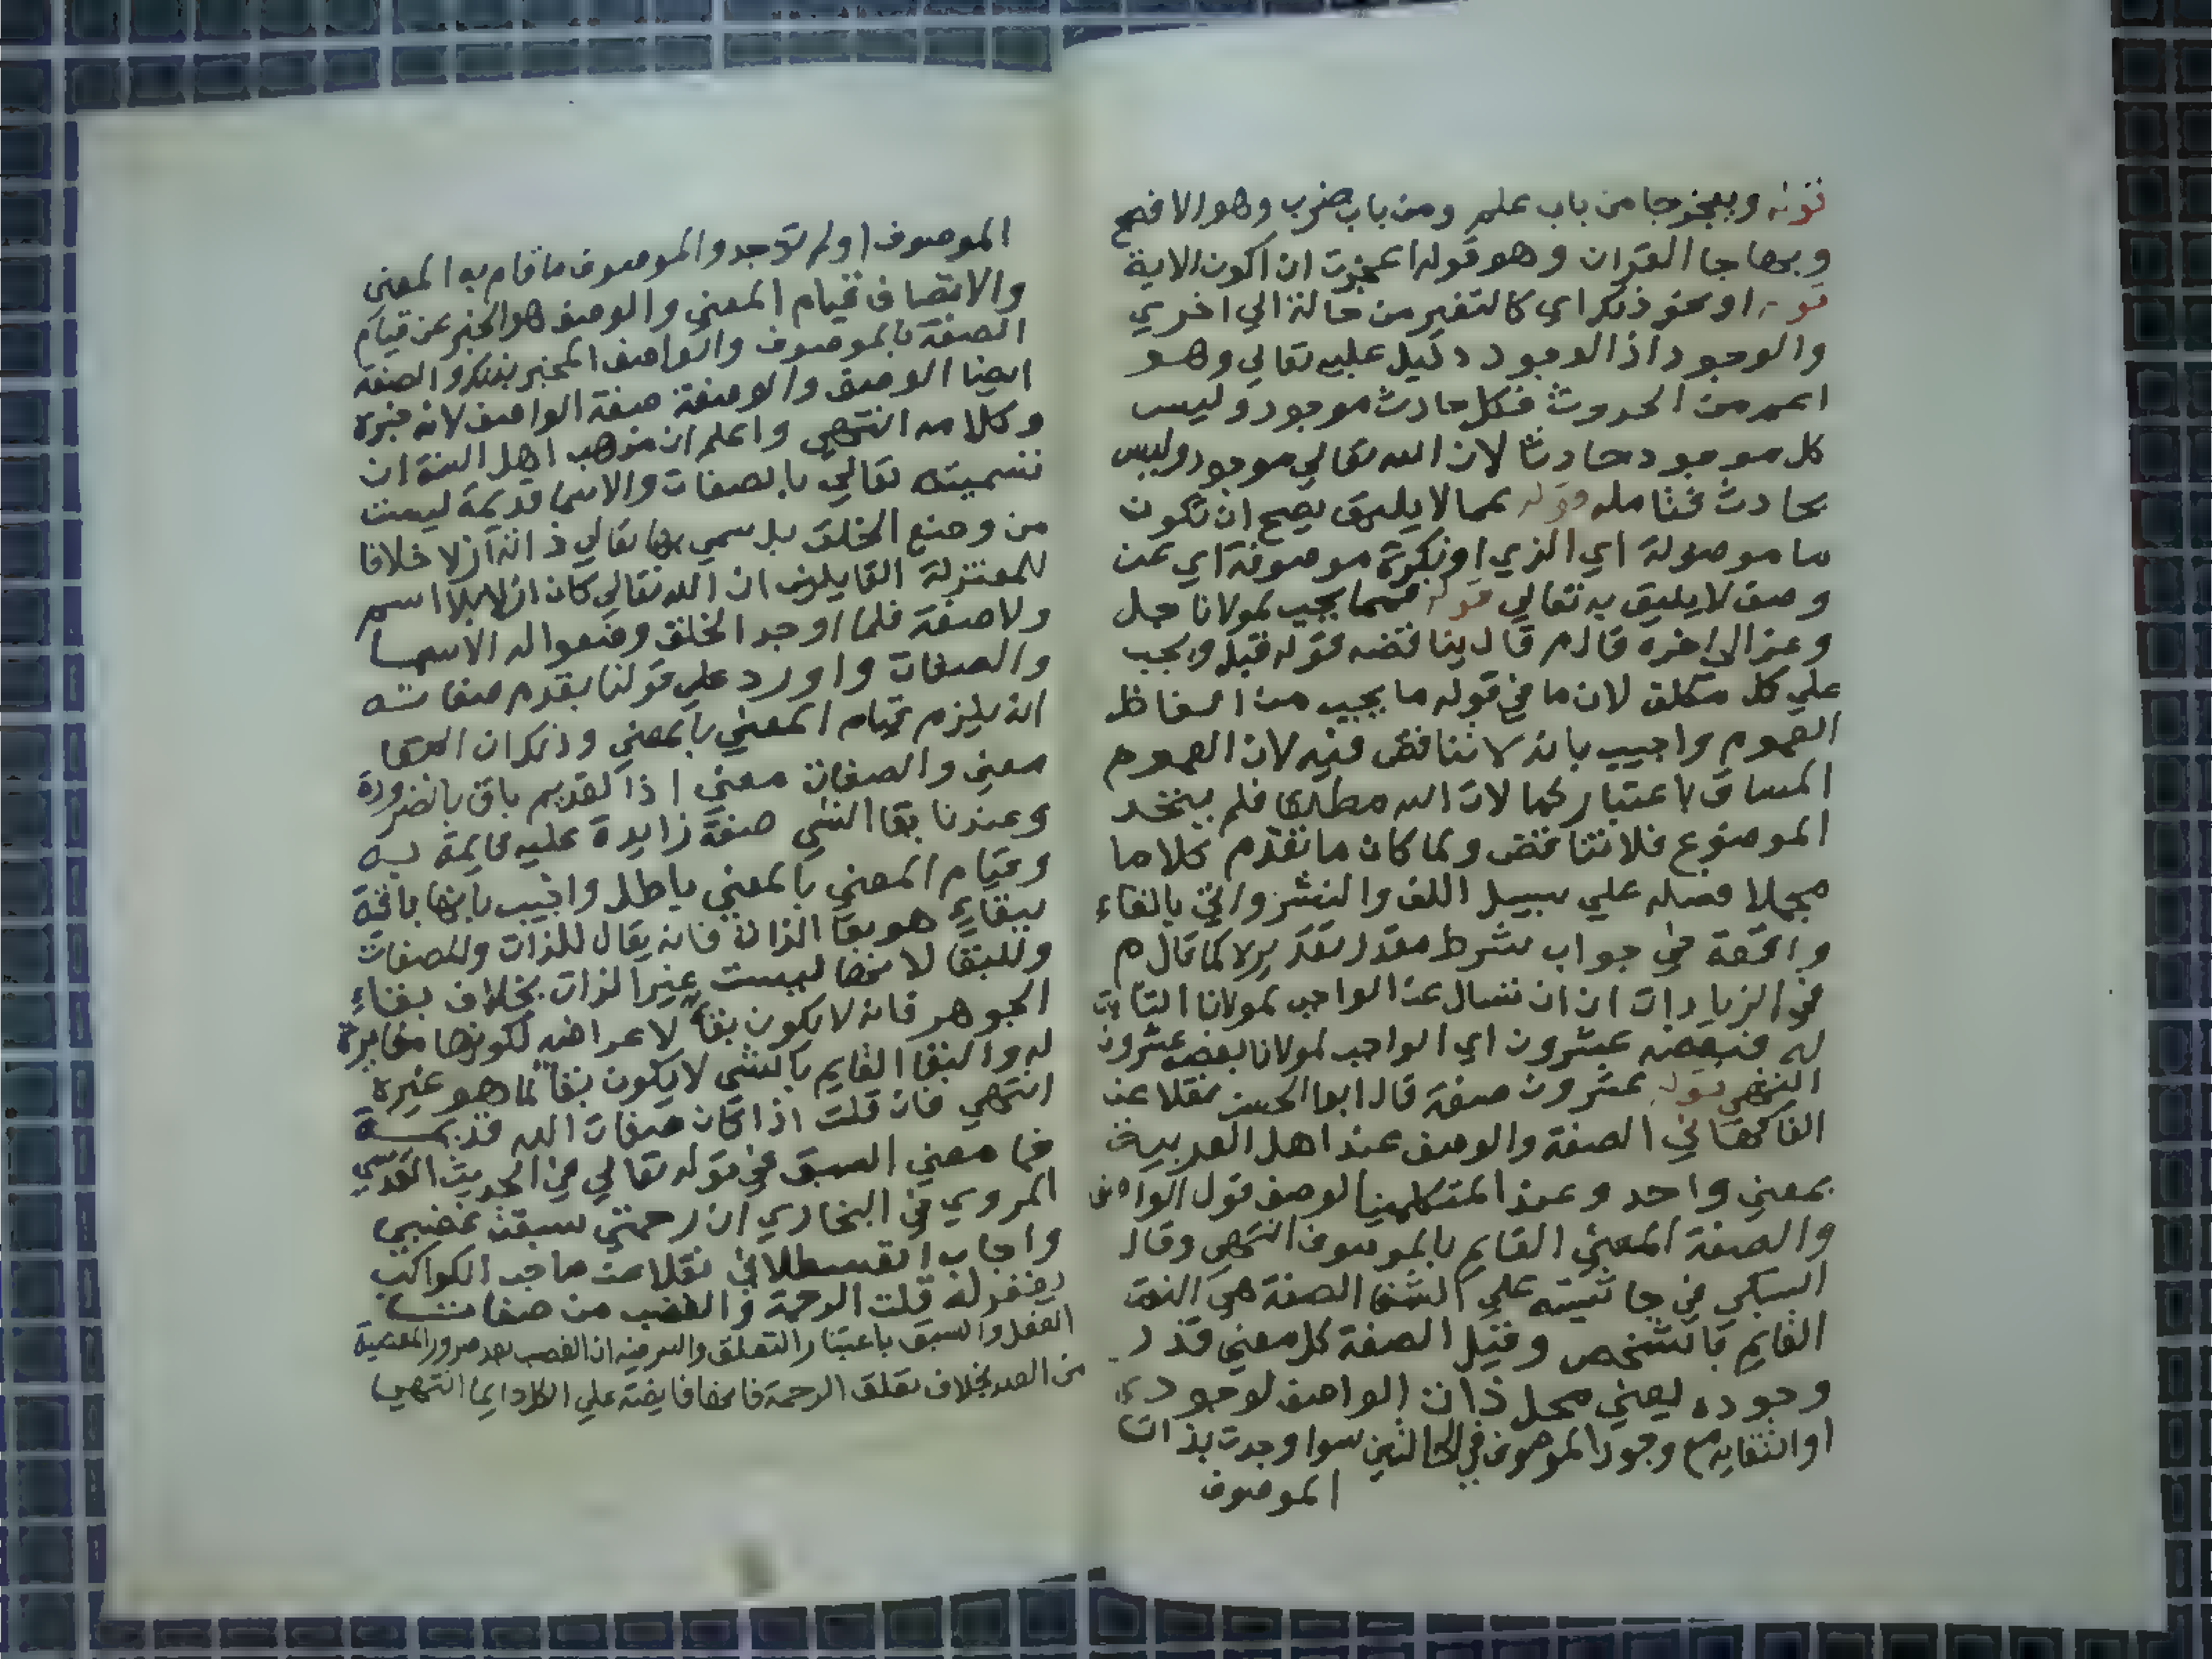 قوله ويعجز جا من باب علم ومن باب ضرب وهو الافصح
وبها جا القران وهو قوله اعجزت ان اكون الاية
قوله او نحو ذلك اي كالتغير من حالة الي اخري
والوجود اذ الوجود دليل عليه تعالي وهو
اعم من الحدوث فكل حادث موجود وليس
كل موجود حادثا لان الله تعالي موجود وليس
بحادث فتامله قوله مما لا يليق يصح ان تكون
ما موصولة اي الذي او نكرة موصوفة اي عن
وصف لا يليق به تعالي قوله فمما يجب لمولانا جل
وعز الي اخره قال م قال يناقضه قوله قبل ويجب
علي كل مكلف لان ما في قوله ما يجب من الفاظ
العموم واجيب بانه لا تناقض فيه لان العموم
المساق باعتبار كما لات الله مطلقا فلم يتحد
الموضوع فلا تناقض ولما كان ما تقدم كلاما
مجملا فصله علي سبيل اللف والنشر واتي بالفاء
واقعة في جواب شرط مقدر تقديره كما قال م
في الزيادات ان ان تسال عن الواجب لمولانا الثابت
له فبعضه عشرون اي الواجب لمولانا بعضه عشرون
انتهي قوله عشرون صفة قال ابو الحسن نقلا عن
الفاكهاني الصفة والوصف عند اهل العربية
بمعني واحد وعند المتكلمين الوصف قول الواصف
والصفة المعني القايم بالموصوف انتهي وقال
السبكي في حاشيته علي الشفا الصفة هي النعت
القايم بالشخص وقيل الصفة كل معني قدر
وجوده يعني محل ذات الواصف لوجوده
او انتفايه مع وجود الموصوف في الحالتين سوا وجدت بذات
الموصوف
الموصوف او لم توجد والموصوف ما قام به المعني
والاتصاف قيام المعني والوصف هو الخبر عن قيام
الصفة بالموصوف والواصف المخبر بذلك والصفة
ايضا الوصف والوصفة صفة الواصف لانه خبره
وكلامه انتهي واعلم ان مذهب اهل السنة ان
تسميته تعالي بالصفات والاسما قديمة ليست
من وضع الخلق بل سمي بها تعالي ذاته ازلا خلافا
للمعتزلة القايلين ان الله تعالي كان ازلا بلا اسم
ولا صفة فلما اوجد الخلق وضعوا له الاسما
والصفات واورد علي قولنا بقدم صفاته
انه يلزم قيام المعني بالمعني وذلك ان البقا
معني والصفات معني اذ القديم باق بالضرورة
وعندنا بقا الشي صفة زايدة عليه قايمة به
وقيام المعني بالمعني باطل واجيب بانها باقية
ببقاء هو بقا الذات فانه بقال للذات وللصفات
وللبقا لانها ليست غير الذات بخلاف بقاء
الجوهر فانه لا يكون بقا لاعراضه لكونها مغايرة
له والبقا القايم بالشي لا يكون بقا لما هو غيره
انتهي فان قلت اذا كان صفات الله قديمة
فما معني السبق في قوله تعالي في الحديث القدسي
المروي في البخاري ان رحمتي سبقت غضبي
واجاب القسطلاني نقلا عن صاحب الكواكب
بقوله قلت الرحمة والغضب من صفات
الفعل والسبق باعتبار التعلق والسر فيه ان الغضب بعد صدور المعصية
من العبد بخلاف تعلق الرحمة فانها فايضة علي الكل دايما انتهي